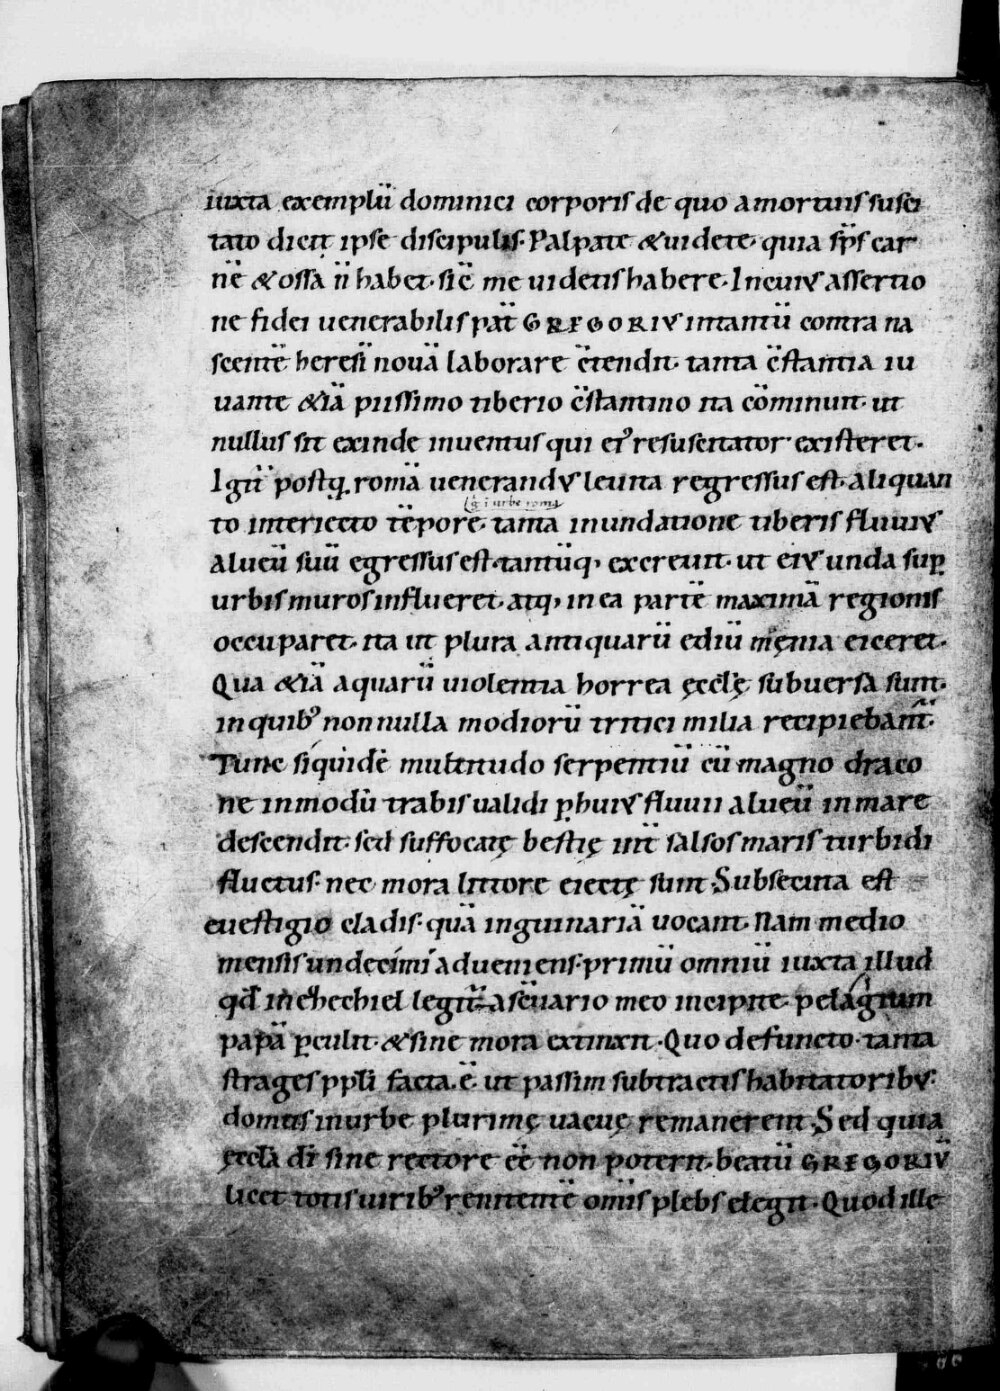 iuxta exemplū dominici corporis de quo a mortuis susci
tato dicit ipse discipulis. Palpate & uidete. quia sp̄s car
nē & ossa n̄ habet. sic̄ me uidetis habere. In cuiꝰ assertio
ne fidei uenerabilis pat̄ GREGORIꝰ intantū contra na
scentē heresī nouā laborare c̄tendit. tanta c̄stantia iu
uante &iā piissimo tiberio c̄stantino ita cōminuit. ut
nullus sit exinde inuentus qui eiꝰ resuscitator existeret.
Igit̄ postq̨ romā uenerandꝰ leuita regressus est. aliquan
l̄ḡ i urbe roma
to interiecto tēpore. tanta inundatione tiberis fluuiꝰ
alueū suū egressus est. tantūq; excreuit. ut eiꝰ unda suꝑ
urbis muros influeret. atq; in ea partē maximā regionis
occuparet. ita ut plura antiquarū ediū męnia eiceret.
Qua &iā aquarū uiolentia horrea ęccl̄ę subuersa sunt.
in quibꝰ nonnulla modiorū tritici milia recipiebant̄.
Tunc siquidē multitudo serpentiū cū magno draco
ne inmodū trabis ualidi ꝑ huiꝰ fluuii alueū in mare
descendit. sed suffocatę bestię int̄ salsos maris turbidi
fluctus. nec mora littore eiectę sunt. Subsecuta est
euestigio cladis. quā inguinariā uocant. Nam medio
mensis undecimi adueniens. primū omniū iuxta illud
qđ in ezhechiel legit̄. a sc̄uario meo incipite. pelagium
papā ꝑculit. & sine mora extinxit. Quo defuncto. tanta
strages ppl̄i facta. ē. ut passim subtractis habitatoribꝰ.
domus in urbe plurimę uacuę remanerent. Sed quia
ęccl̄a dī sine rectore ēē non poterit. beatū GREGORIŪ
licet totis uiribꝰ renitentē omīs plebs elegit. Quod ille